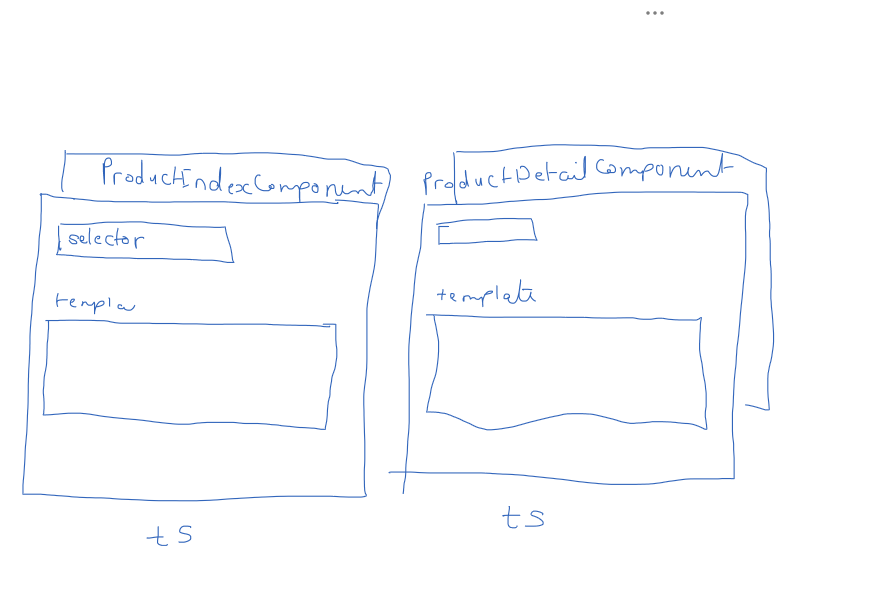 ProductIndexComponent
selector
templa
ts
ProductDetailComponent
template
ts